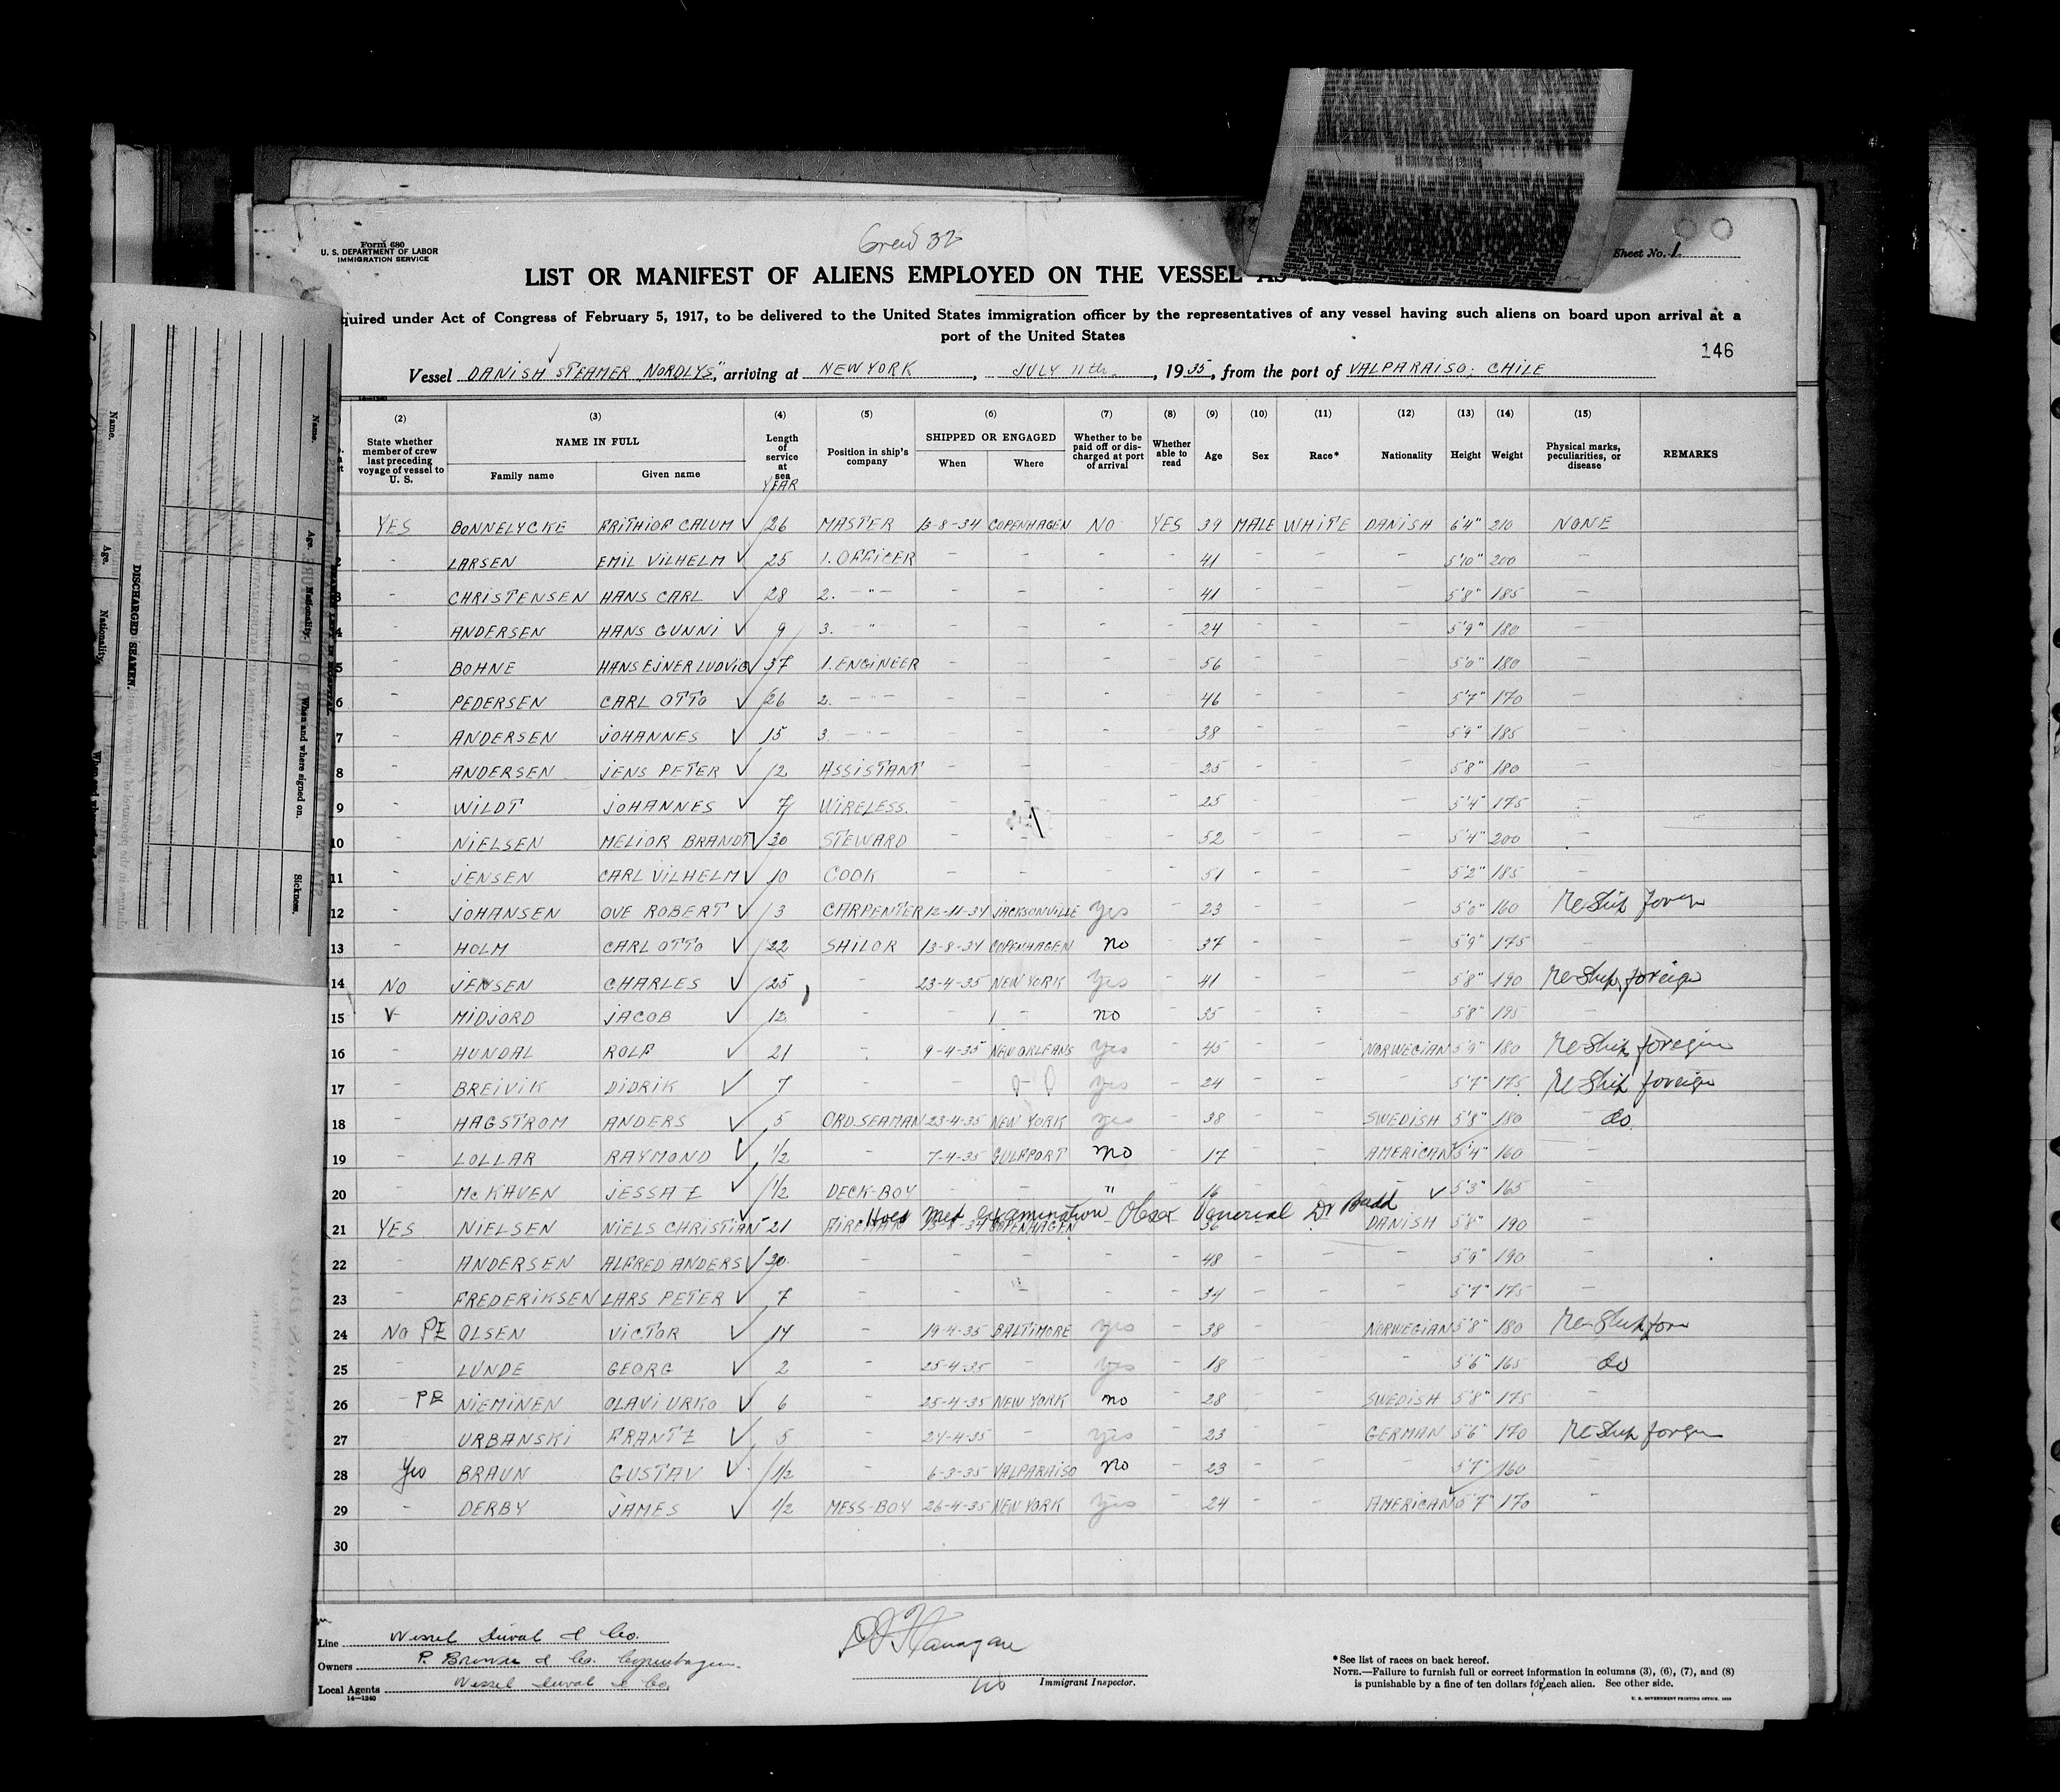 Crew 32
Form 680
U. S. DEPARTMENT OF LABOR
IMMIGRATION SERVICE
Sheet No. 1
LIST OR MANIFEST OF ALIENS EMPLOYED ON THE VESSEL AS
quired under Act of Congress of February 5, 1917, to be delivered to the United States immigration officer by the representatives of any vessel having such aliens on board upon arrival at a
port of the United States
146
Vessel DANISH STEAMER „NORDLYS", arriving at NEW YORK, JULY 11th., 1935, from the port of VALPARAISO; CHILE
(2) (3) (4) (5) (6) (7) (8) (9) (10) (11) (12) (13) (14) (15)
State whether member of crew last preceding voyage of vessel to U. S. NAME IN FULL Family name Given name Length of service at sea YEAR Position in ship's company SHIPPED OR ENGAGED When Where Whether to be paid off or discharged at port of arrival Whether able to read Age Sex Race* Nationality Height Weight Physical marks, peculiarities, or disease REMARKS
1 YES BONNELYCKE FRITHIOF CALUM √ 26 MASTER 13-8-34 COPENHAGEN NO YES 39 MALE WHITE DANISH 6'4" 210 NONE
2 - LARSEN EMIL VILHELM √ 25 1. OFFICER - - - - 41 - - - 5'10" 200 -
3 - CHRISTENSEN HANS CARL √ 28 2. -"- - - - - 41 - - - 5'8" 185 -
4 - ANDERSEN HANS GUNNI √ 9 3. -"- - - - - 24 - - - 5'9" 180 -
5 - BOHNE HANS EJNER LUDVIG √ 37 1. ENGINEER - - - - 56 - - - 5'0" 180 -
6 - PEDERSEN CARL OTTO √ 26 2. -"- - - - - 46 - - - 5'7" 170 -
7 - ANDERSEN JOHANNES √ 15 3. -"- - - - - 38 - - - 5'9" 185 -
8 - ANDERSEN JENS PETER √ 2 ASSISTANT - - - - 25 - - - 5'8" 180 -
9 - WILDT JOHANNES √ 7 WIRELESS. - - - - 25 - - - 5'4" 175 -
10 - NIELSEN MELIOR BRANDT √ 30 STEWARD - - - - 52 - - - 5'4" 200 -
11 - JENSEN CARL VILHELM √ 10 COOK - - - - 51 - - - 5'2" 185 -
12 - JOHANSEN OVE ROBERT √ 3 CARPENTER 12-11-34 JACKSONVILLE yes - 23 - - - 5'6" 160 Re Ship foreign
13 - HOLM CARL OTTO √ 22 SAILOR 13-8-34 COPENHAGEN no - 37 - - - 5'9" 175 -
14 NO JENSEN CHARLES √ 25 - 23-4-35 NEW YORK yes - 41 - - - 5'8" 190 Re Ship foreign
15 √ - MIDJORD JACOB √ 12 - - - no - 35 - - - 5'8" 195 -
16 - HUNDAL ROLF √ 21 - 9-4-35 NEW ORLEANS yes - 45 - - NORWEGIAN 5'9" 180 Re Ship foreign
17 - BREIVIK DIDRIK √ 7 - - - yes - 24 - - - 5'7" 175 Re Ship foreign
18 - HAGSTROM ANDERS √ 5 ORD. SEAMAN 23-4-35 NEW YORK yes - 38 - - SWEDISH 5'8" 180 - do
19 - LOLLAR RAYMOND √ 1/2 - 7-4-35 GULFPORT no - 17 - - AMERICAN 5'4" 160 -
20 - Mc KAVEN JESSA Z √ 1/2 DECK-BOY - - " - 16 - - - √ 5'3" 165 -
Hold Med examination Obser Venerial Dr Budd
21 YES NIELSEN NIELS CHRISTIAN √ 21 FIREMAN 13-8-34 COPENHAGEN - - 36 - - DANISH 5'8" 190 -
22 - ANDERSEN ALFRED ANDERS √ 30 - - - - - 48 - - - 5'9" 190 -
23 - FREDERIKSEN LARS PETER √ 7 - - - - - 34 - - - 5'7" 175 -
24 NO PE OLSEN VICTOR √ 14 - 19-4-35 BALTIMORE yes - 38 - - NORWEGIAN 5'8" 180 Re-Ship forn
25 - LUNDE GEORG √ 2 - 25-4-35 - yes - 18 - - - 5'6" 165 do
26 - PE NIEMINEN OLAVI URKO √ 6 - 25-4-35 NEW YORK no - 28 - - SWEDISH 5'8" 175 -
27 - URBANSKI FRANTZ √ 5 - 24-4-35 - yes - 23 - - GERMAN 5'6" 170 Re Ship foreign
28 Yes BRAUN GUSTAV √ 1/2 - 6-3-35 VALPARAISO no - 23 - - - 5'7" 160 -
29 - DERBY JAMES √ 1/2 MESS-BOY 26-4-35 NEW YORK yes - 24 - - AMERICAN 5'7" 170 -
30
Line Wessel Duval & Co.
Owners P. Brown & Co. Copenhagen.
Local Agents Wessel Duval & Co.
14—1240
Immigrant Inspector.
*See list of races on back hereof.
NOTE.—Failure to furnish full or correct information in columns (3), (6), (7), and (8)
is punishable by a fine of ten dollars for each alien. See other side.
U. S. GOVERNMENT PRINTING OFFICE
Name.
Age.
Nationality.
When and where signed on.
Sickness.
DISCHARGED SEAMEN.
Name.
Age.
Nationality.